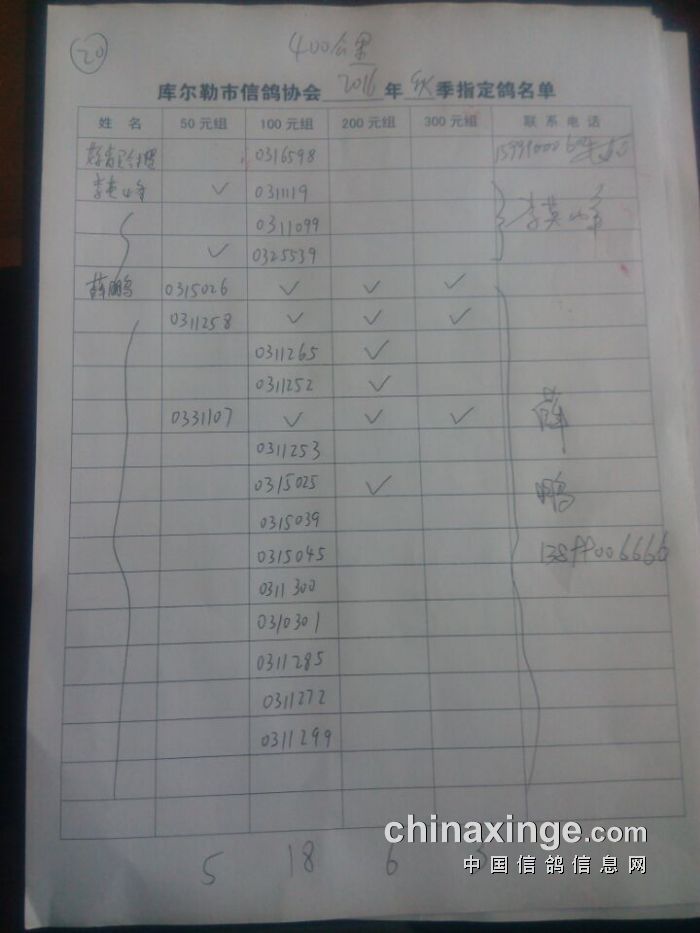 20
400公里
库尔勒市信鸽协会 2016 年 秋 季指定鸽名单
姓 名 50元组 100元组 200元组 300元组 联系电话
0316598
李英峰 ✓ 0311119
0311099 李英峰
✓ 0325539
薛鹏 0315026 ✓ ✓ ✓
0311258 ✓ ✓ ✓
0311265 ✓
0311252 ✓
0331107 ✓ ✓ ✓ 薛
0311253
0315025 ✓ 鹏
0315039
0315045
0311300
0310301
0311285
0311272
0311299
5 18 6 3
chinaxinge.com
中国信鸽信息网